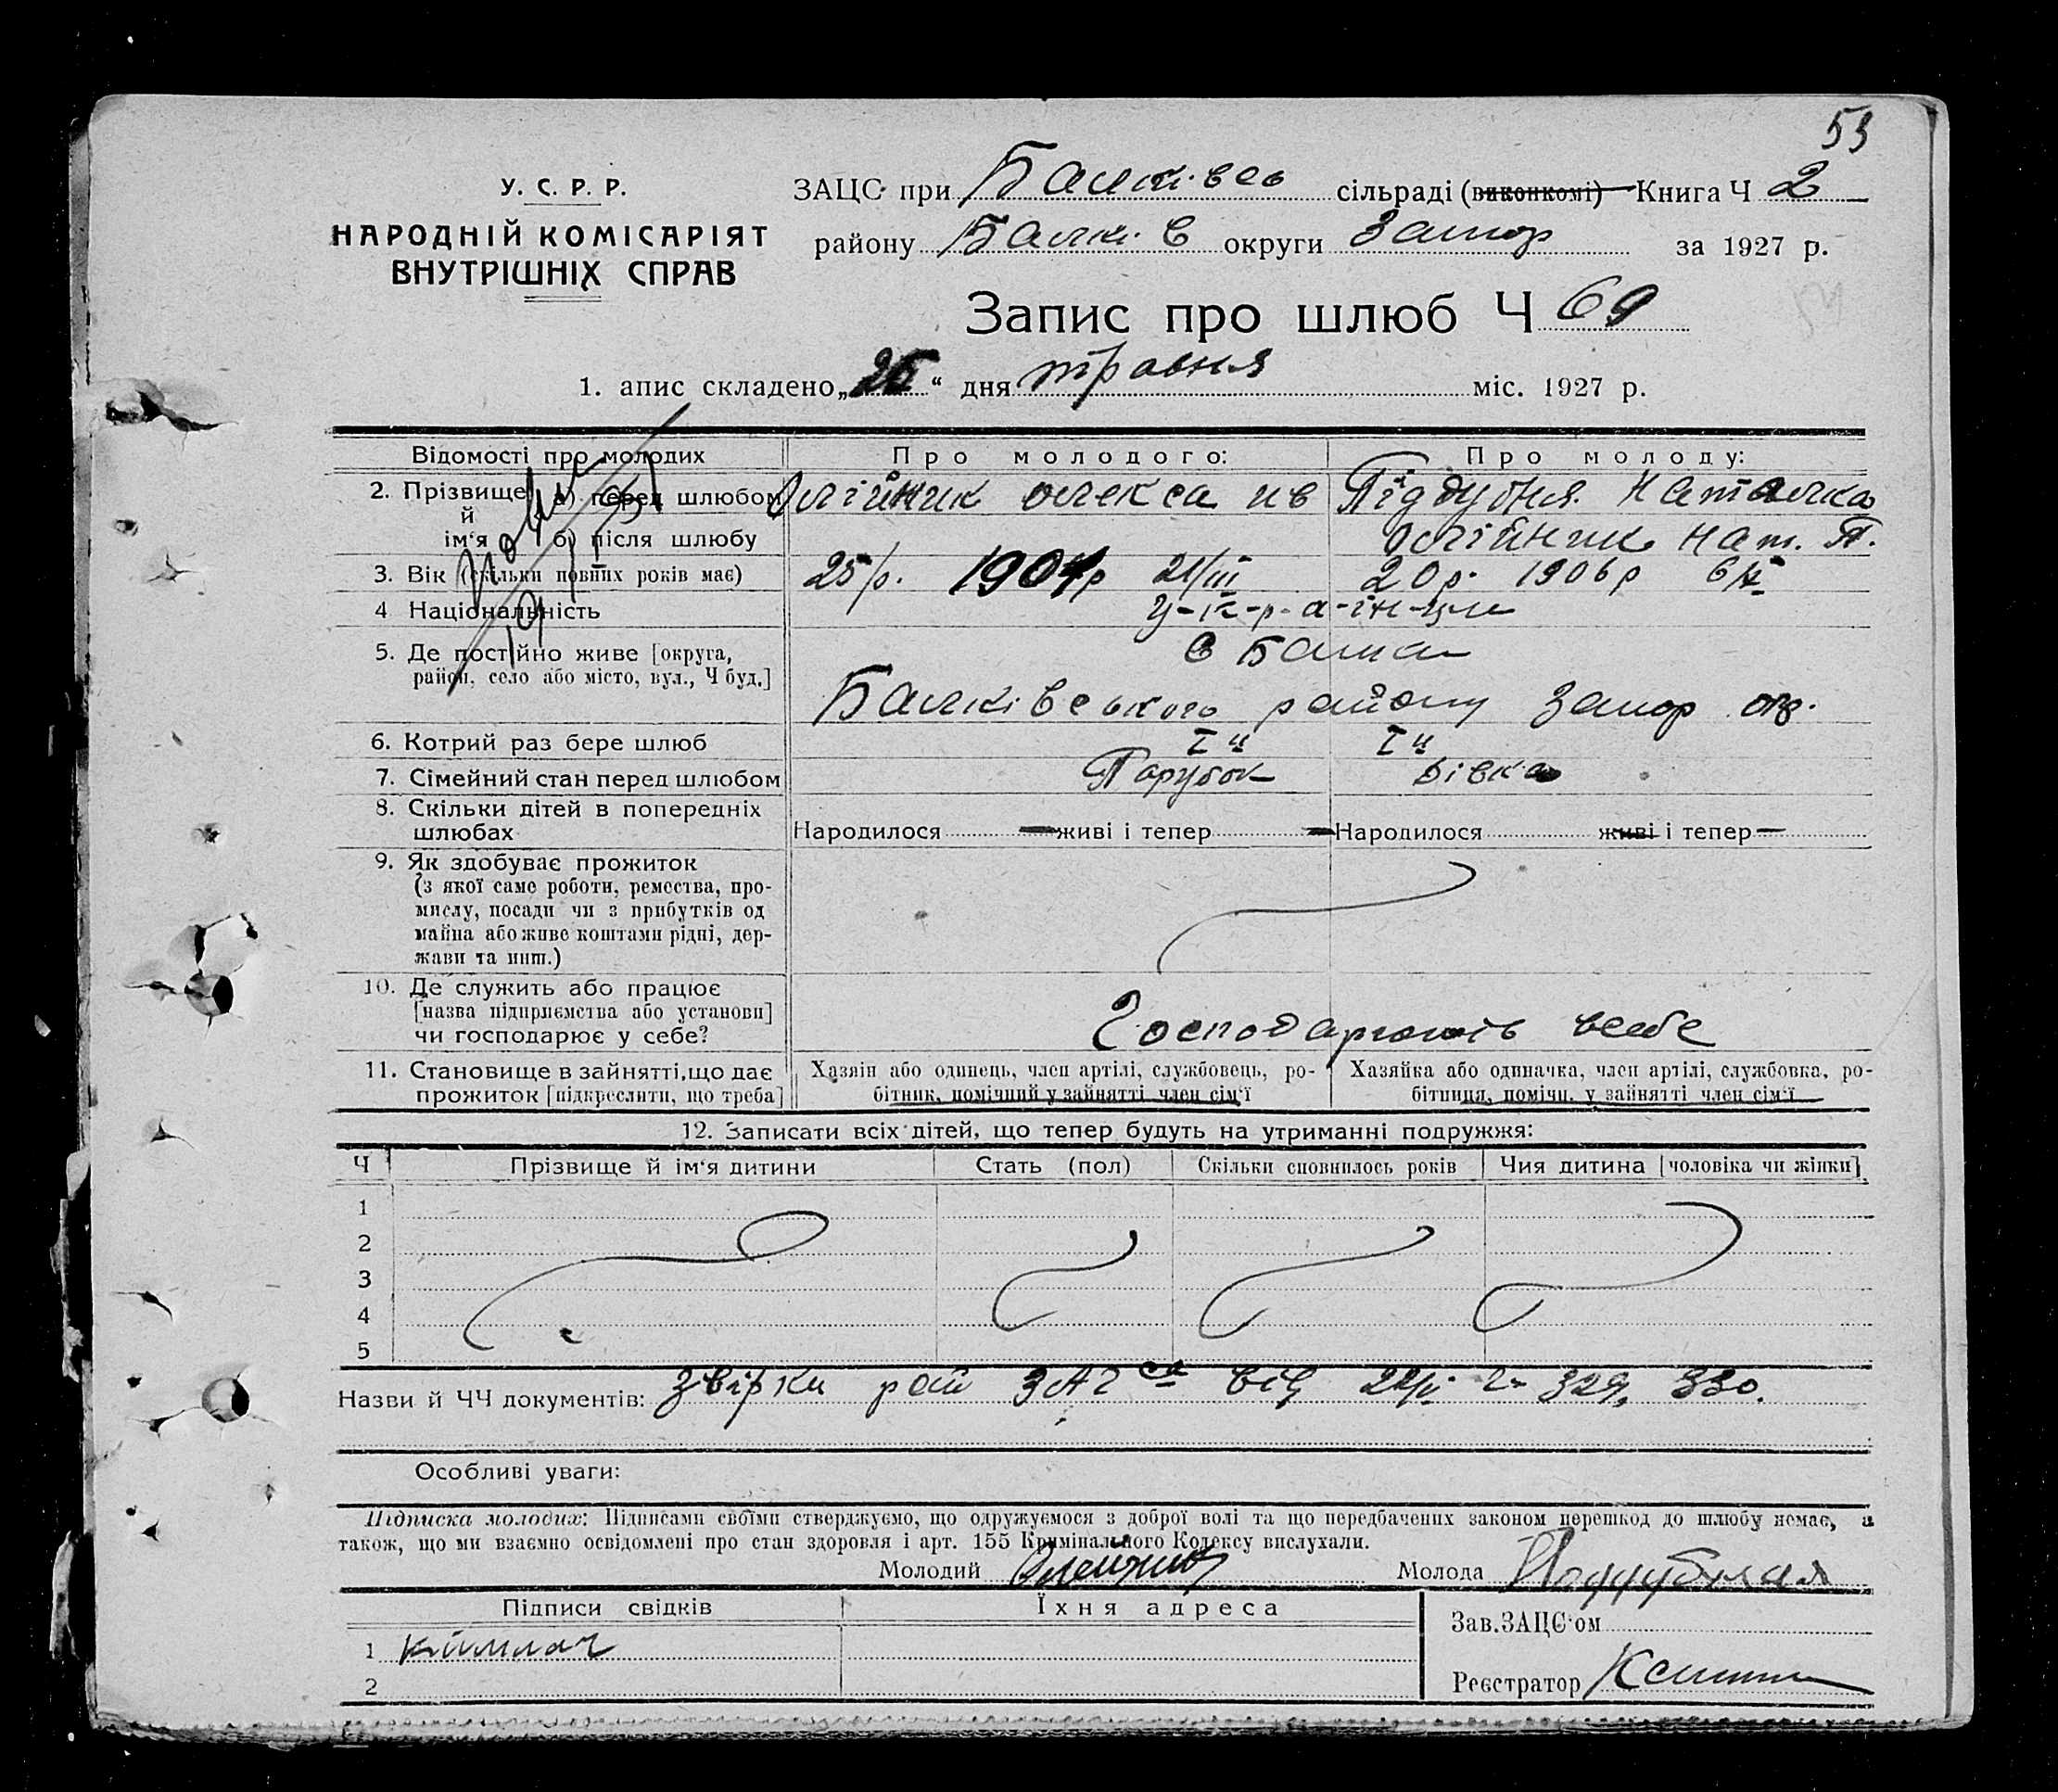 53
У. С. Р. Р.
НАРОДНІЙ КОМІСАРІЯТ
ВНУТРІШНІХ СПРАВ
ЗАЦС при Балківсь сільраді (виконкомі) Книга Ч 2
району Балків округи Запор за 1927 р.
Запис про шлюб Ч 69
1. апис складено „ “ дня травня міс. 1927 р.
Відомості про молодих Про молодого: Про молоду:
2. Прізвище й ім‘я а) перед шлюбом Олійник олекса ив Піддубня Наталка
б) після шлюбу Олійник Нат. П.
3. Вік (скільки повних років має) 25/р. 1904р 21/III 20р. 1906р
4 Національність у-к-р-а-їн-ці
5. Де постійно живе [округа, район, село або місто, вул., Ч буд.] с Балка
Балківського району Запор окр.
6. Котрий раз бере шлюб I й I й
7. Сімейний стан перед шлюбом Парубок Дівка
8. Скільки дітей в попередніх
шлюбах Народилося — живі і тепер — Народилося живі і тепер —
9. Як здобуває прожиток
(з якої саме роботи, ремества, про-
мислу, посади чи з прибутків од
майна або живе коштами рідні, дер-
жави та инш.)
10. Де служить або працює
[назва підприємства або установи]
чи господарює у себе? Господарюють всебе
11. Становище в зайнятті, що дає Хазяїн або одинець, член артілі, службовець, ро- Хазяйка або одиначка, член артілі, службовка, ро-
прожиток [підкреслити, що треба] бітник, помічний у зайнятті член сім‘ї бітниця, помічн. у зайнятті член сім‘ї
12. Записати всіх дітей, що тепер будуть на утриманні подружжя:
Ч Прізвище й ім‘я дитини Стать (пол) Скільки сповнилось років Чия дитина [чоловіка чи жінки]
1
2
3
4
5
Назви й ЧЧ документів: Звірки рай ЗАГса від 329, 330.
Особливі уваги:
Підписка молодих: Підписами своїми стверджуємо, що одружуємося з доброї волі та що передбачених законом перешкод до шлюбу немає, а
також, що ми взаємно освідомлені про стан здоровля і арт. 155 Кримінального Кодексу вислухали.
Молодий Олейник Молода Поддубная
Підписи свідків Їхня адреса
Зав. ЗАЦС‘ом
1
2
Реєстратор